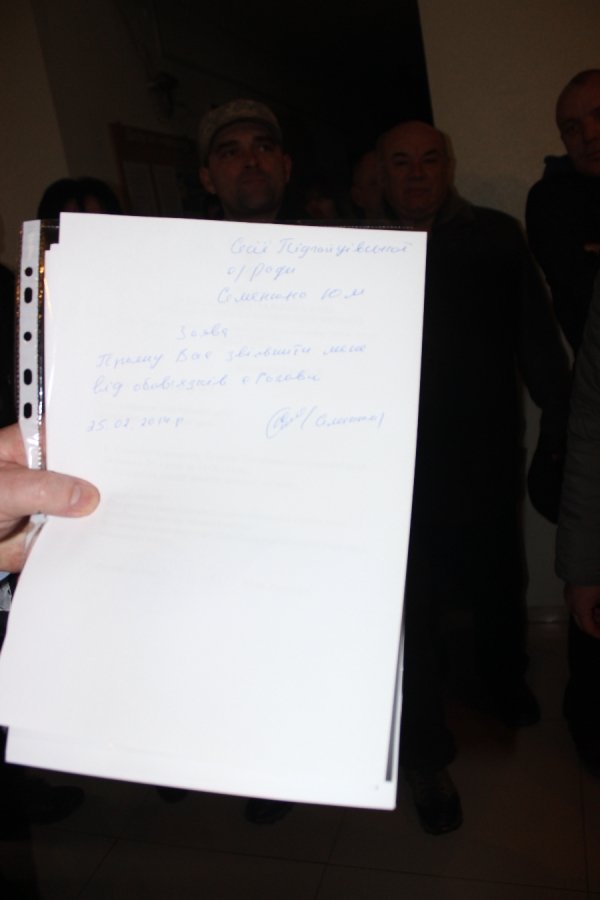 Сесії Підгайцівської
с/ради
Семенина Ю.М
Заява
Прошу Вас звільнити мене
від обов'язків с Голови
25.02 2014 р
/Семенина/